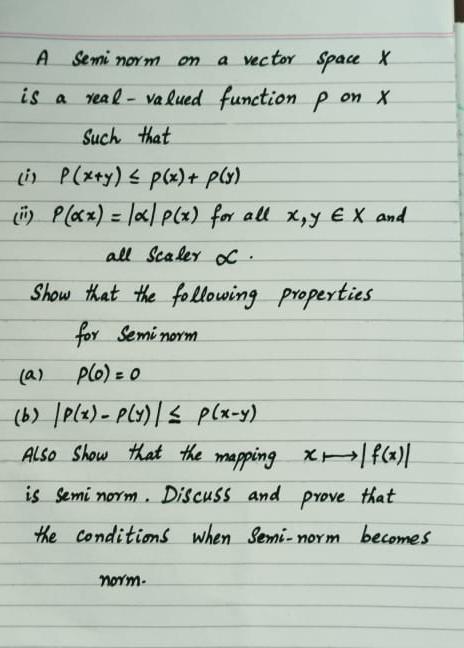 A Semi norm on a vector Space X
is a real-valued function p on X
Such that
(i) P(x+y) ≤ p(x)+ p(y)
(ii) P(αx) = |α| p(x) for all x,y ∈ X and
all Scaler α.
Show that the following properties
for Seminorm
(a) p(0) = 0
(b) |P(x) - P(y)| ≤ p(x-y)
Also Show that the mapping x ↦ |f(x)|
is semi norm. Discuss and prove that
the conditions when Semi-norm becomes
norm.